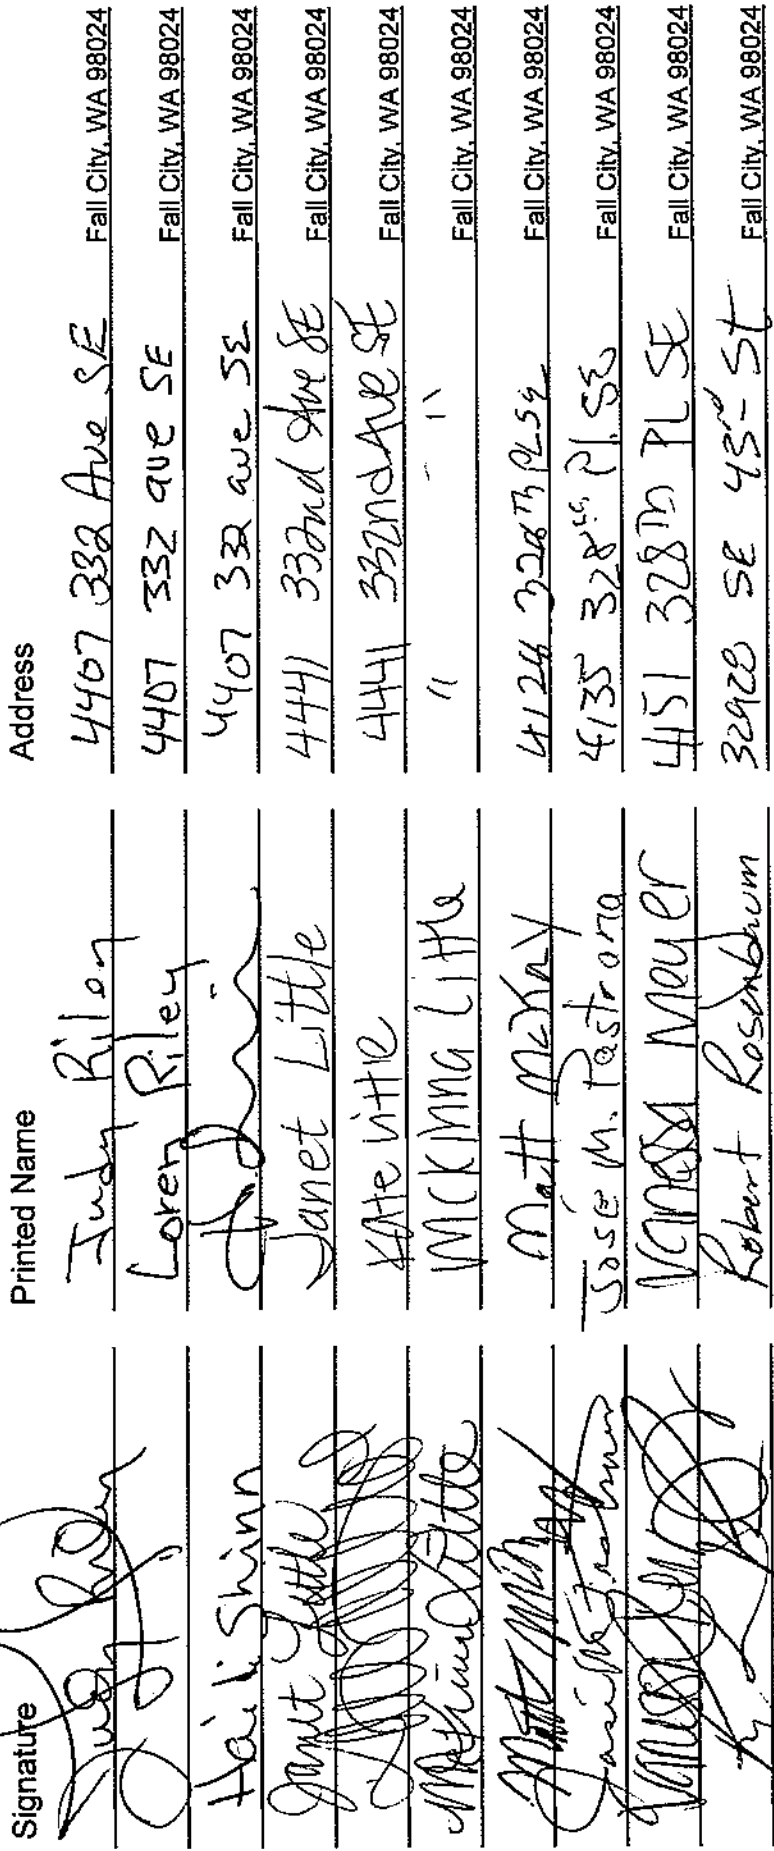 Signature Printed Name Address
Judy Riley Judy Riley 4407 332 Ave SE Fall City, WA 98024
Loren Riley 4407 332 ave SE Fall City, WA 98024
Haili Shinn 4407 332 ave SE Fall City, WA 98024
Janet Little Janet Little 4441 332nd Ave SE Fall City, WA 98024
Kate Little 4441 332nd Ave SE Fall City, WA 98024
McKinna Little McKinna Little " - " Fall City, WA 98024
Matt McKay 328th PL SE Fall City, WA 98024
Jose M. Pastrana 4135 328th Pl. SE Fall City, WA 98024
Vanessa Meyer 4151 328Th PL SE Fall City, WA 98024
Robert Rosenbaum 32928 SE 43rd St Fall City, WA 98024